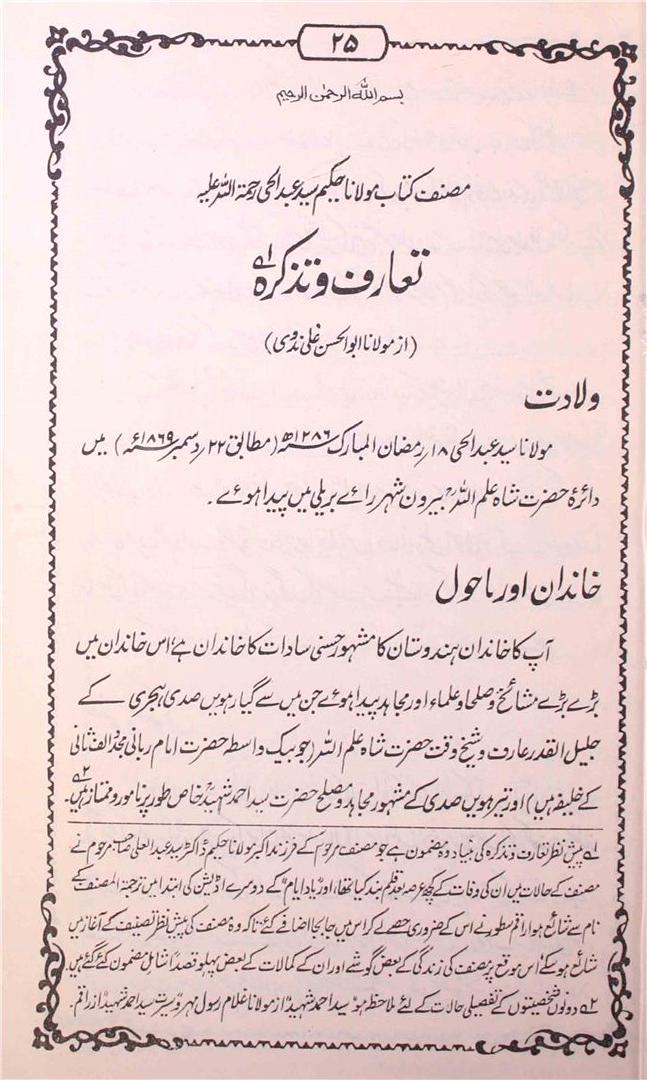 ۲۵
بسم اللہ الرحمٰن الرحیم
مصنف کتاب مولانا حکیم سید عبدالحی رحمۃ اللہ علیہ
تعارف و تذکرہ لے
(از مولانا ابوالحسن علی ندوی)
ولادت
مولانا سید عبدالحی ۱۸؍ رمضان المبارک ۱۲۸۶ھ (مطابق ۲۲؍ دسمبر ۱۸۶۹ء) میں
دائرۂ حضرت شاہ علم اللہؒ بیرون شہر رائے بریلی میں پیدا ہوئے۔
خاندان اور ماحول
آپ کا خاندان ہندوستان کا مشہور حسنی سادات کا خاندان ہے، اس خاندان میں
بڑے بڑے مشائخ و صلحا و علماء اور مجاہد پیدا ہوئے جن میں سے گیارہویں صدی ہجری کے
جلیل القدر عارف و شیخ وقت حضرت شاہ علم اللہ (جو بیک واسطہ حضرت امام ربانی مجدد الف ثانی
کے خلیفہ ہیں) اور تیرہویں صدی کے مشہور مجاہد و مصلح حضرت سید احمد شہیدؒ خاص طور پر نامور و ممتاز ہیں۔ ۲ے
لے پیش نظر تعارف و تذکرہ کی بنیاد وہ مضمون ہے جو مصنف مرحوم کے فرزند اکبر مولانا حکیم ڈاکٹر سید عبدالعلی صاحب مرحوم نے
مصنف کے حالات میں ان کی وفات کے کچھ عرصہ بعد قلم بند کیا تھا، اور "یاد ایام" کے دوسرے اڈیشن کی ابتدا میں ترجمۃ المصنف کے
نام سے شائع ہوا، راقم سطور نے اس کے ضروری حصے لے کر اس میں جا بجا اضافے کئے، تاکہ وہ مصنف کی پیش نظر تصنیف کے آغاز میں
شائع ہو سکے، اس موقع پر مصنف کی زندگی کے بعض گوشے اور ان کے کمالات کے بعض پہلو قصداً شامل مضمون کئے گئے ہیں
۲ے دونوں شخصیتوں کے تفصیلی حالات کے لئے ملاحظہ ہو سید احمد شہیدؒ از مولانا غلام رسول مہر و سیرت سید احمد شہیدؒ از راقم۔